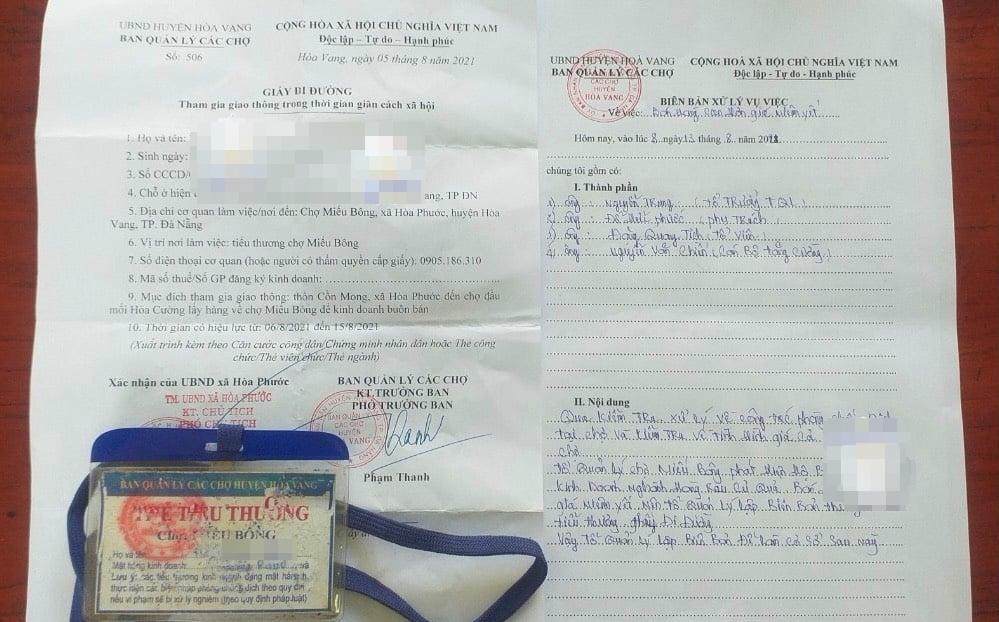 UBND HUYỆN HÒA VANG
BAN QUẢN LÝ CÁC CHỢ
Số: 506
CỘNG HÒA XÃ HỘI CHỦ NGHĨA VIỆT NAM
Độc lập – Tự do – Hạnh phúc
Hòa Vang, ngày 05 tháng 8 năm 2021
GIẤY ĐI ĐƯỜNG
Tham gia giao thông trong thời gian giãn cách xã hội
1. Họ và tên:
2. Sinh ngày:
3. Số CCCD/
4. Chỗ ở hiện ang, TP ĐN
5. Địa chỉ cơ quan làm việc/nơi đến: Chợ Miếu Bông, xã Hòa Phước, huyện Hòa
Vang, TP. Đà Nẵng
6. Vị trí nơi làm việc: tiểu thương chợ Miếu Bông
7. Số điện thoại cơ quan (hoặc người có thẩm quyền cấp giấy): 0905.186.310
8. Mã số thuế/Số GP đăng ký kinh doanh:
9. Mục đích tham gia giao thông: thôn Cồn Mong, xã Hòa Phước đến chợ đầu
mối Hòa Cường lấy hàng về chợ Miếu Bông để kinh doanh buôn bán
10. Thời gian có hiệu lực từ: 06/8/2021 đến 15/8/2021
(Xuất trình kèm theo Căn cước công dân/Chứng minh nhân dân hoặc Thẻ công
chức/Thẻ viên chức/Thẻ ngành)
Xác nhận của UBND xã Hòa Phước
TM. UBND XÃ HÒA PHƯỚC
KT. CHỦ TỊCH
PHÓ CHỦ TỊCH
BAN QUẢN LÝ CÁC CHỢ
KT.TRƯỞNG BAN
PHÓ TRƯỞNG BAN
Phạm Thanh
BAN QUẢN LÝ CÁC CHỢ HUYỆN HÒA VANG
THẺ TIỂU THƯƠNG
Chợ: MIẾU BÔNG
Họ và tên:
Mặt hàng kinh doanh:
Lưu ý: các tiểu thương kinh doanh đúng mặt hàng
thực hiện các biện pháp phòng chống dịch theo quy định
nếu vi phạm sẽ bị xử lý nghiêm (theo quy định pháp luật)
UBND HUYỆN HOÀ VANG
BAN QUẢN LÝ CÁC CHỢ
CỘNG HOÀ XÃ HỘI CHỦ NGHĨA VIỆT NAM
Độc lập - Tự do - Hạnh phúc
BIÊN BẢN XỬ LÝ VỤ VIỆC
Về việc: Bán hàng cao hơn giá niêm yết
Hôm nay, vào lúc 8, ngày 13 tháng 8 năm 2021
chúng tôi gồm có:
I. Thành phần
1) ông: Nguyễn Trung (Tổ Trưởng TQL)
2) ông: Đỗ Phước (phụ Trách)
3) ông: Đặng Quang Tích (Tổ viên)
4) ông: Nguyễn Văn Chiến (Cán Bộ tăng cường)
II. Nội dung
Qua kiểm Tra xử lý về công tác phòng chống Dịch
tại chợ và kiểm Tra về tình hình giá cả
chợ
Tổ Quản Lý chợ Miếu Bông phát hiện hộ
Kinh Doanh nghành Hàng Rau Củ Quả. Bán
giá niêm yết nên tổ Quản Lý Lập Biên Bản thu
tiểu thương giấy Đi Đường
Vậy Tổ Quản Lý Lập Biên Bản Để Làm cơ sở sau này